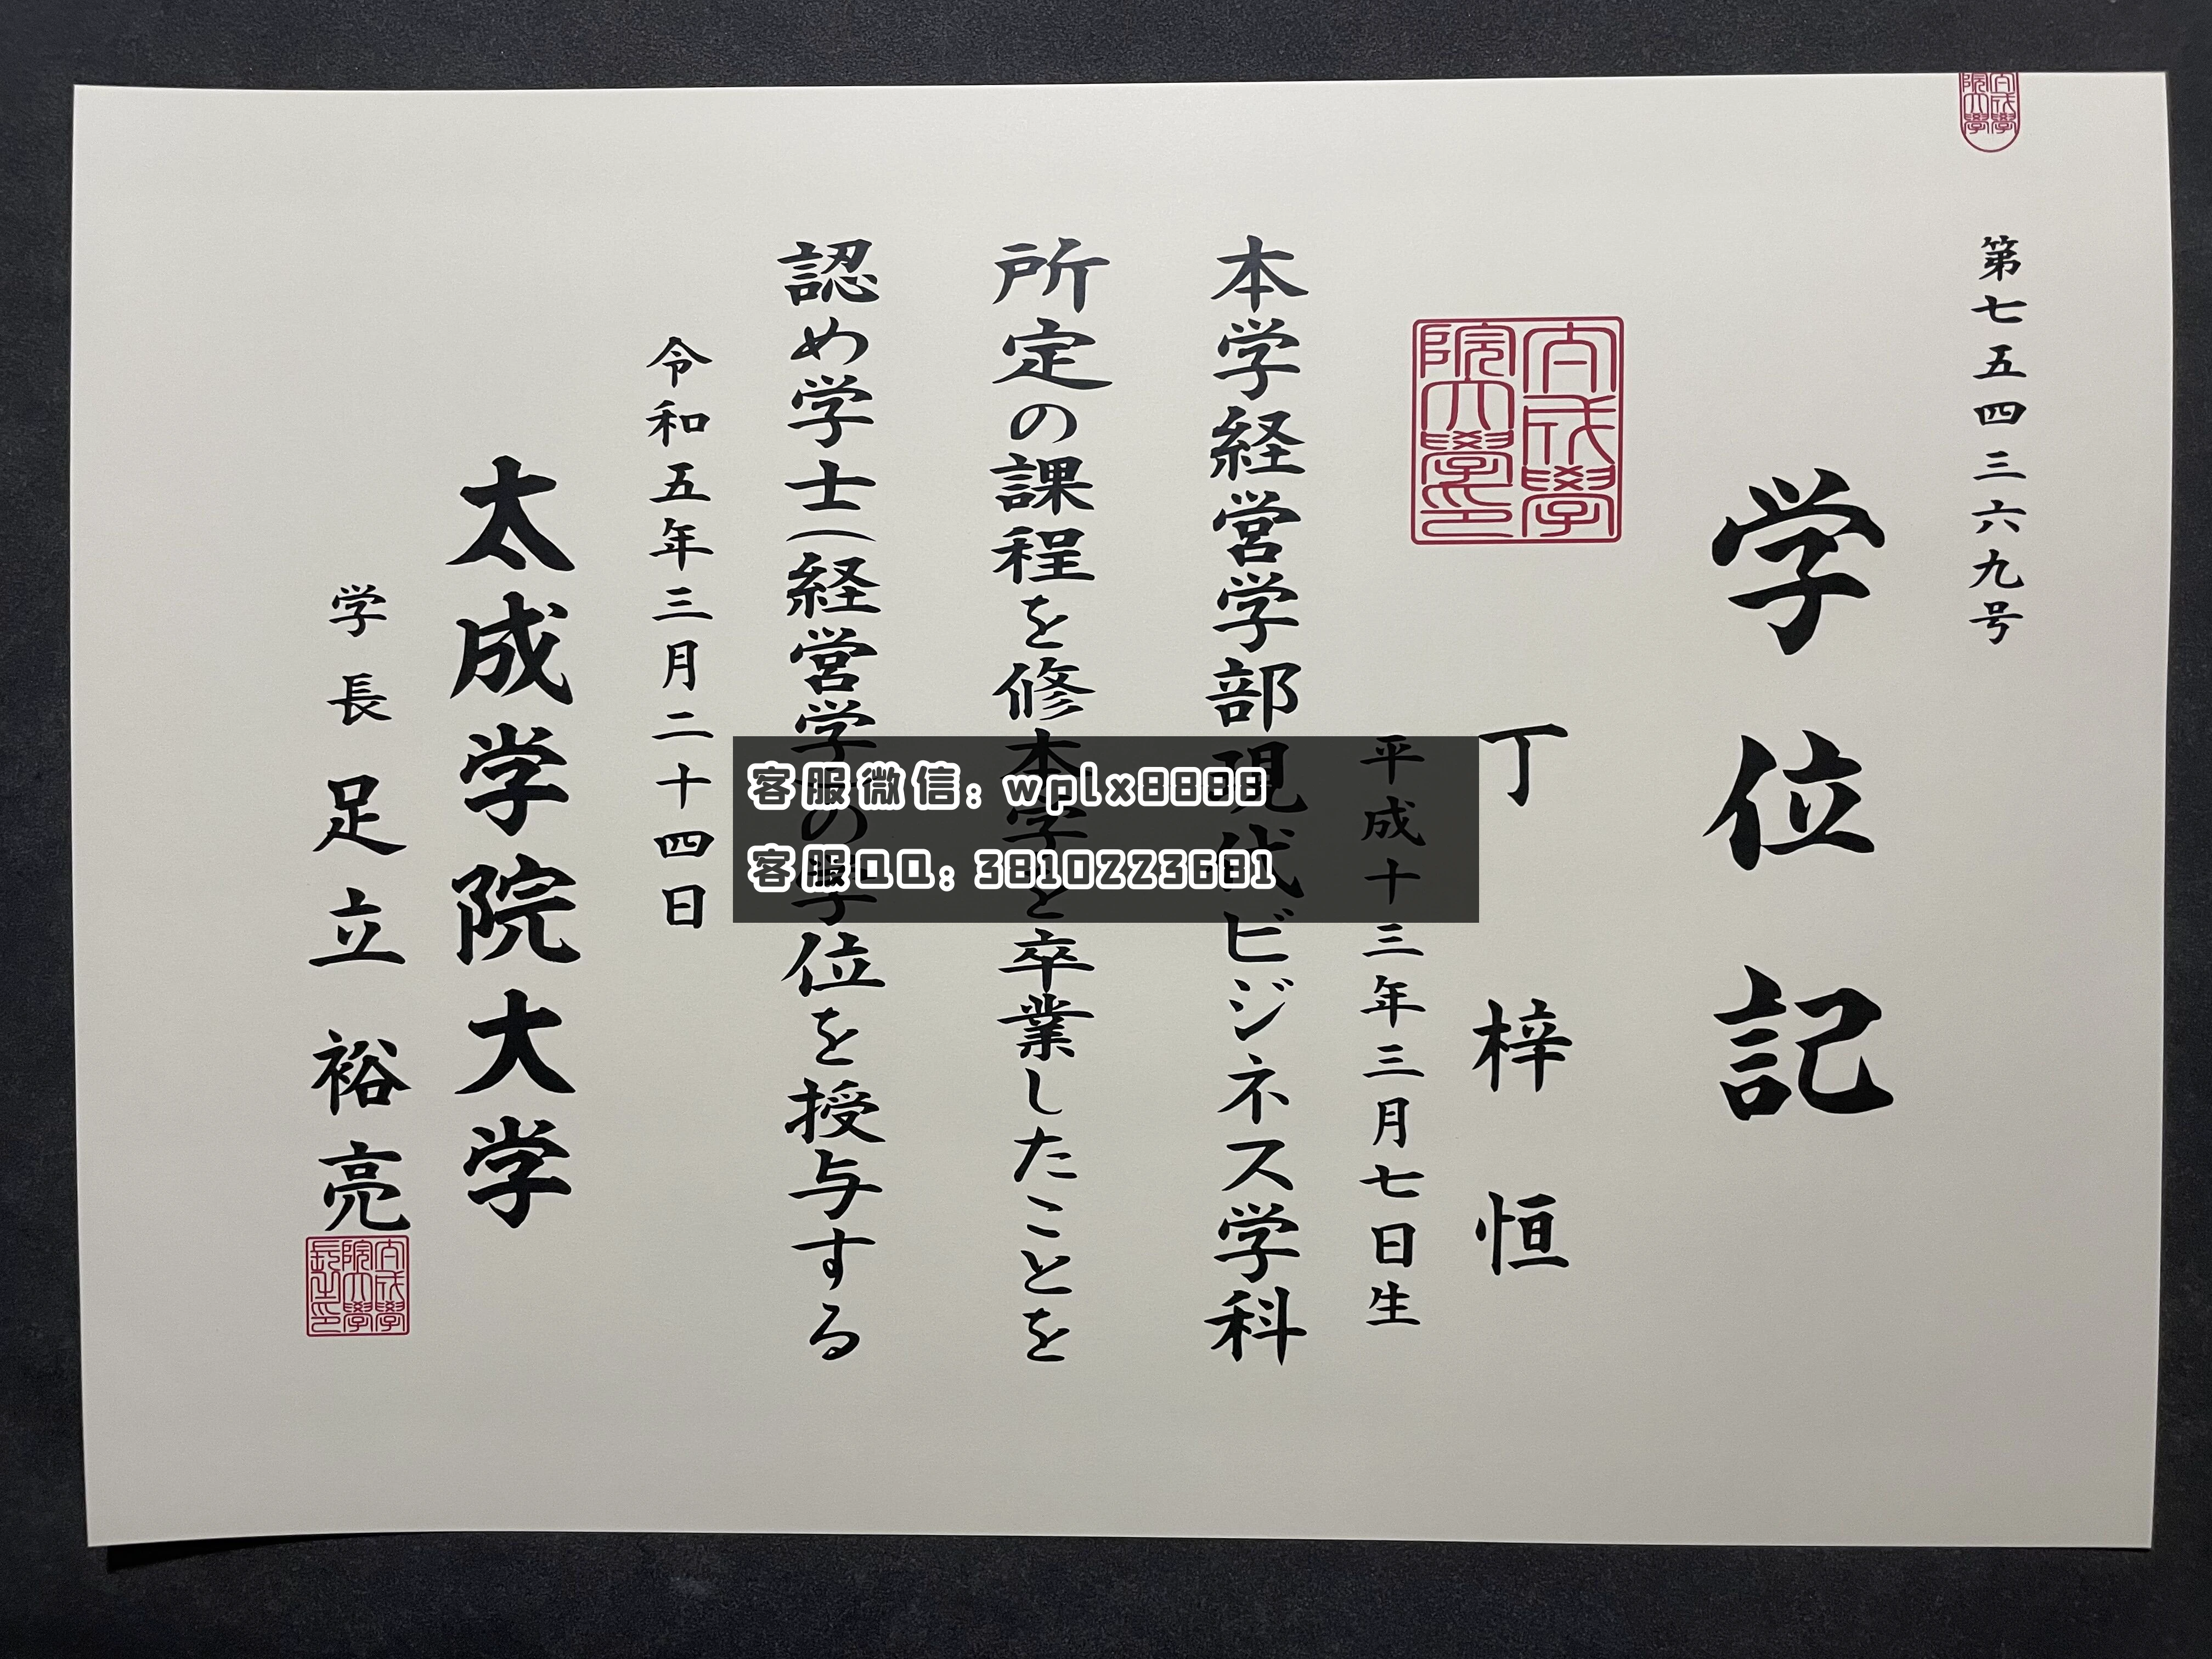 第七五四三六九号
学位記
丁梓恒
平成十三年三月七日生
本学経営学部現代ビジネス学科
所定の課程を修本学を卒業したことを
認め学士(経営学)の学位を授与する
令和五年三月二十四日
太成学院大学
学長 足立裕亮
客服微信: wplx8888
客服QQ: 3810223681